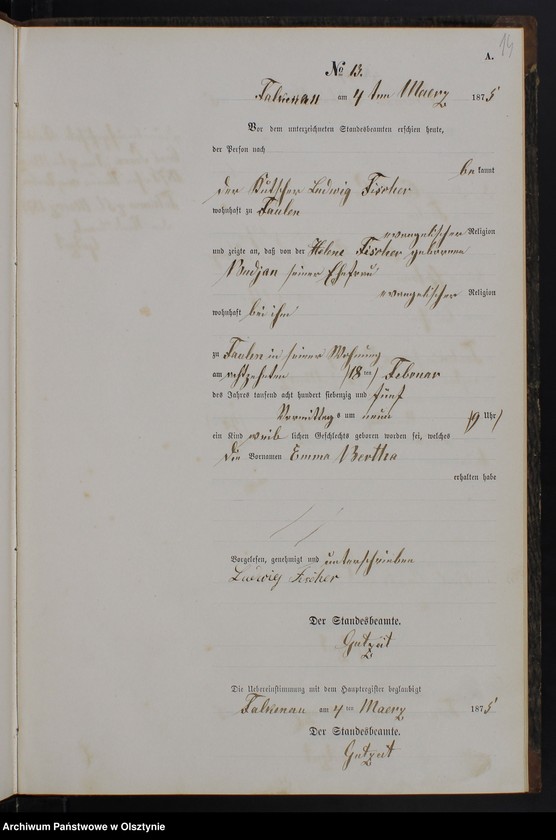 14
A.
No 13.
Falkenau am 4 ten Maerz 1875
Vor dem unterzeichneten Standesbeamten erschien heute,
der Person nach
bekannt
der Kutscher Ludwig Fischer
wohnhaft zu Faulen
evangelischer Religion
und zeigte an, daß von der Helene Fischer geborenen
seiner Ehefrau
evangelischer Religion
wohnhaft bei ihm
zu Faulen in seiner Wohnung
am achtzehnten (18 ten) Februar
des Jahres tausend acht hundert siebenzig und fünf
Vormittags um neun (9 Uhr)
ein Kind weiblichen Geschlechts geboren worden sei, welches
die Vornamen Emma Bertha
erhalten habe
Vorgelesen, genehmigt und unterschrieben
Ludwig Fischer
Der Standesbeamte.
Gutzeit
Die Uebereinstimmung mit dem Hauptregister beglaubigt
Falkenau am 4 ten Maerz 1875
Der Standesbeamte.
Gutzeit
Archiwum Państwowe w Olsztynie